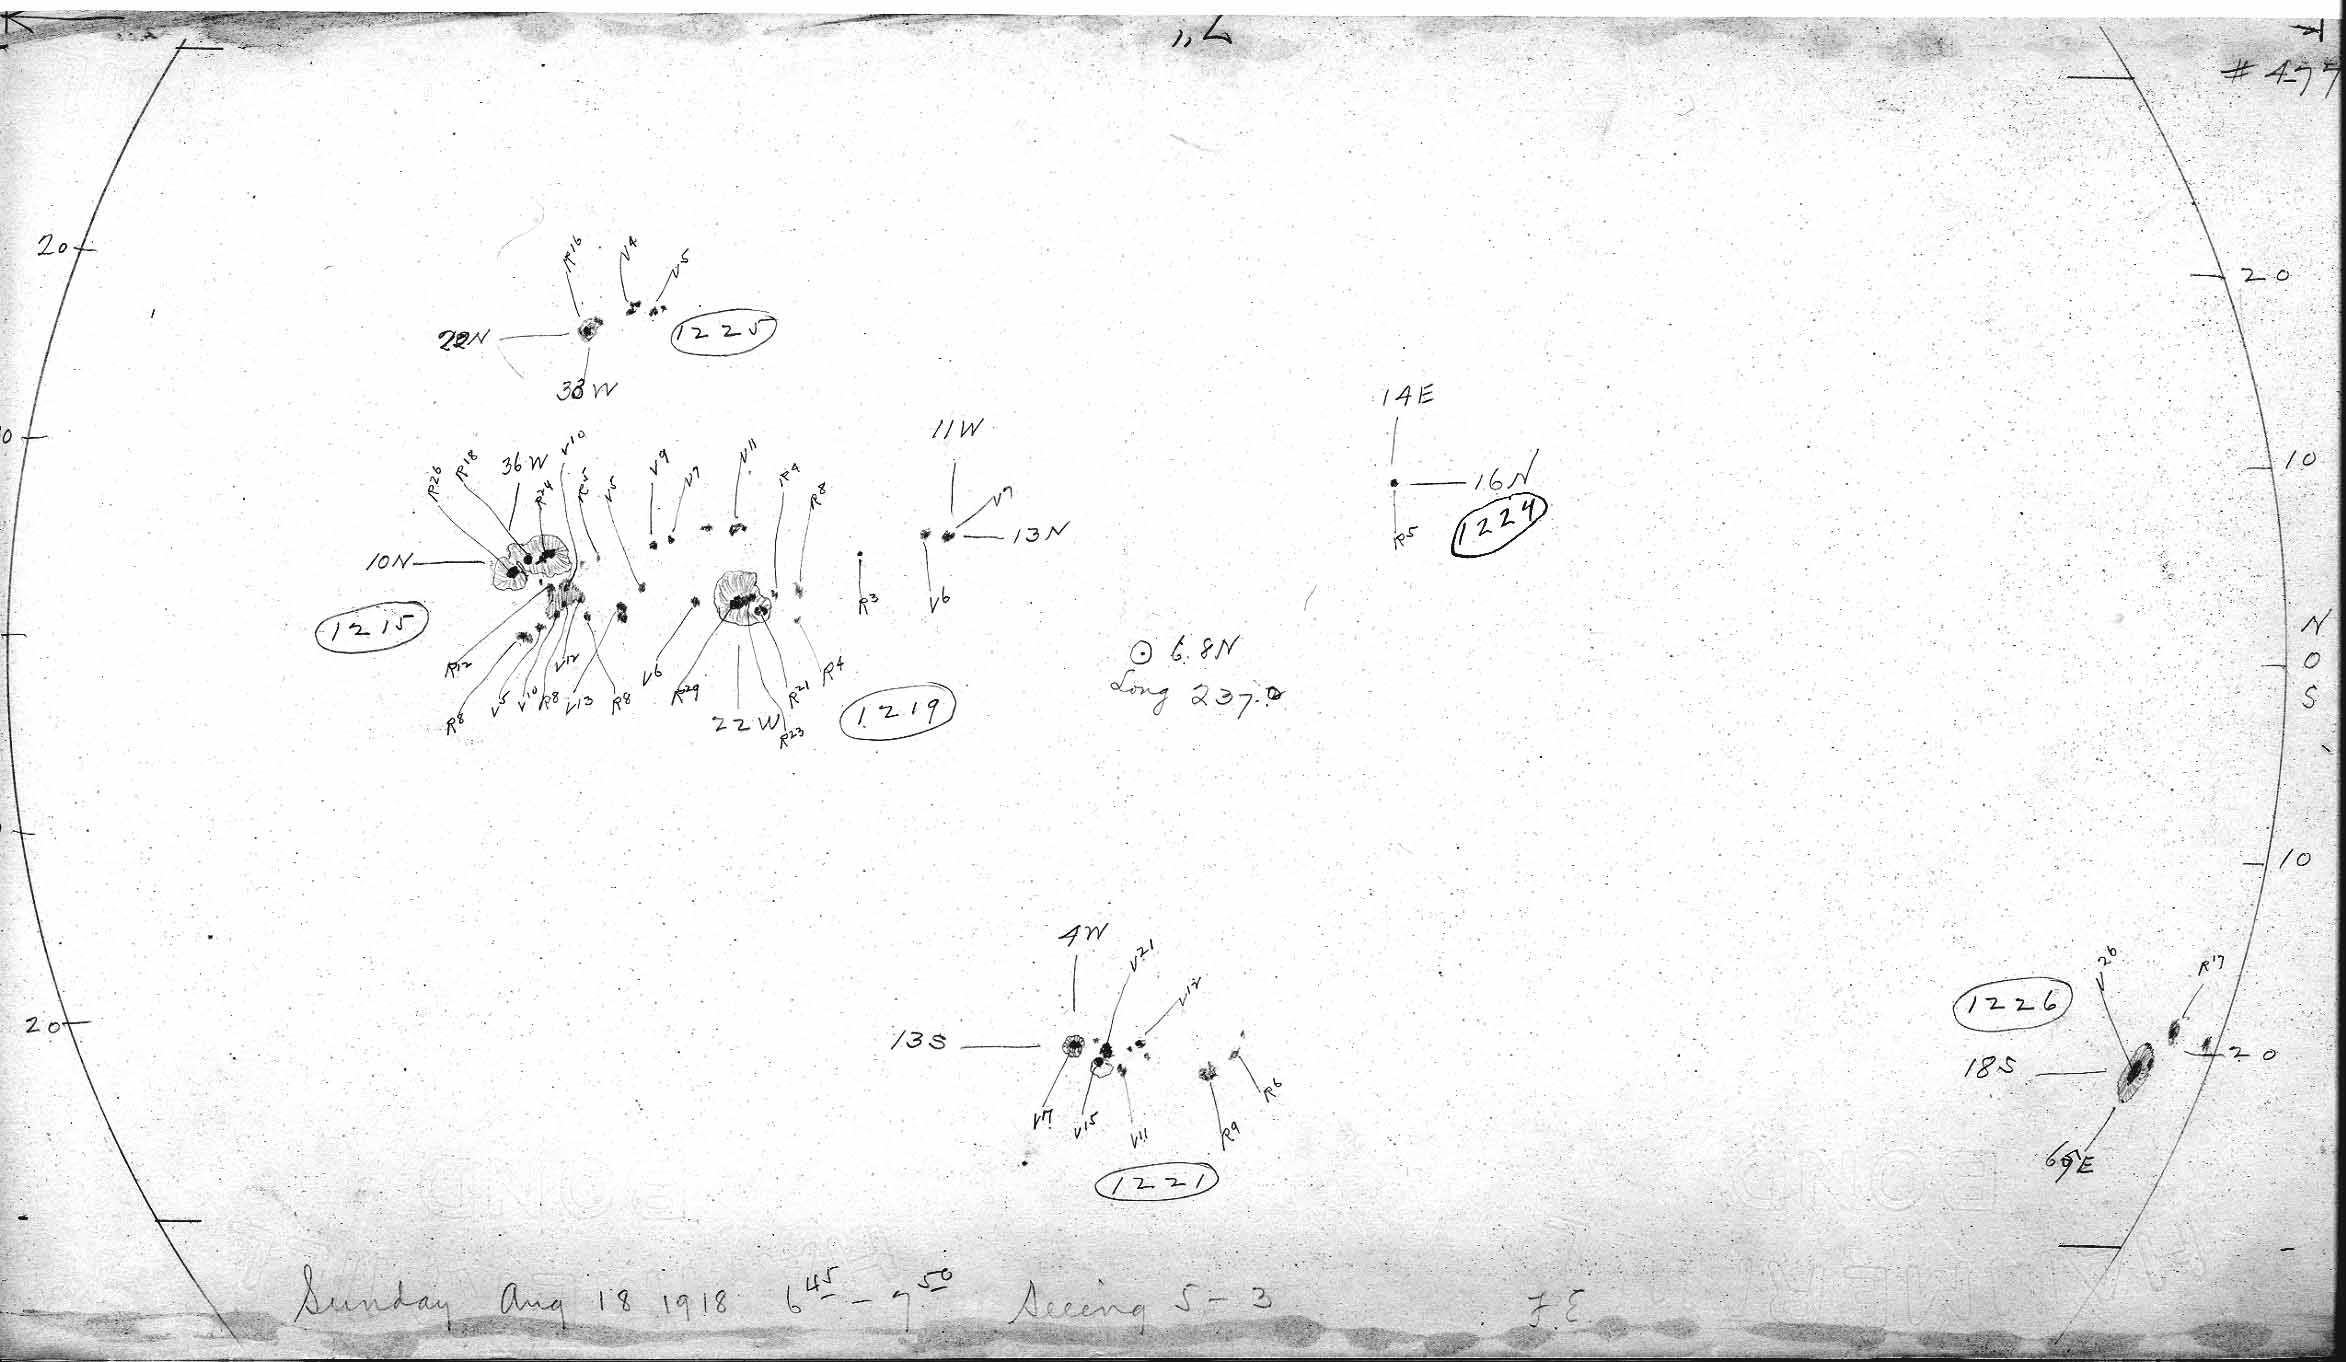 "L
# 477
20
20
R16 V4 V5
22N
1225
33W
14E
10
11W
10
R26 R18 36W R24 V10 R5 V5 V9 V7 V11 R4 R8
V7
16N
13N
1224
R5
10N
R3 V6
1215
N
0
S
⊙ 6.8N
Long 237.2
R12 V12 V6 R4
R8 V5 V10 R8 V13 R8 R29 R21
22W R23
1219
10
4W V21
V12
V26 R17
1226
13S
18S
20
20
V17 V15 V11 R9 R6
1221
E
Sunday Aug 18 1918 6 45 - 7 50 Seeing 5-3 F.E.